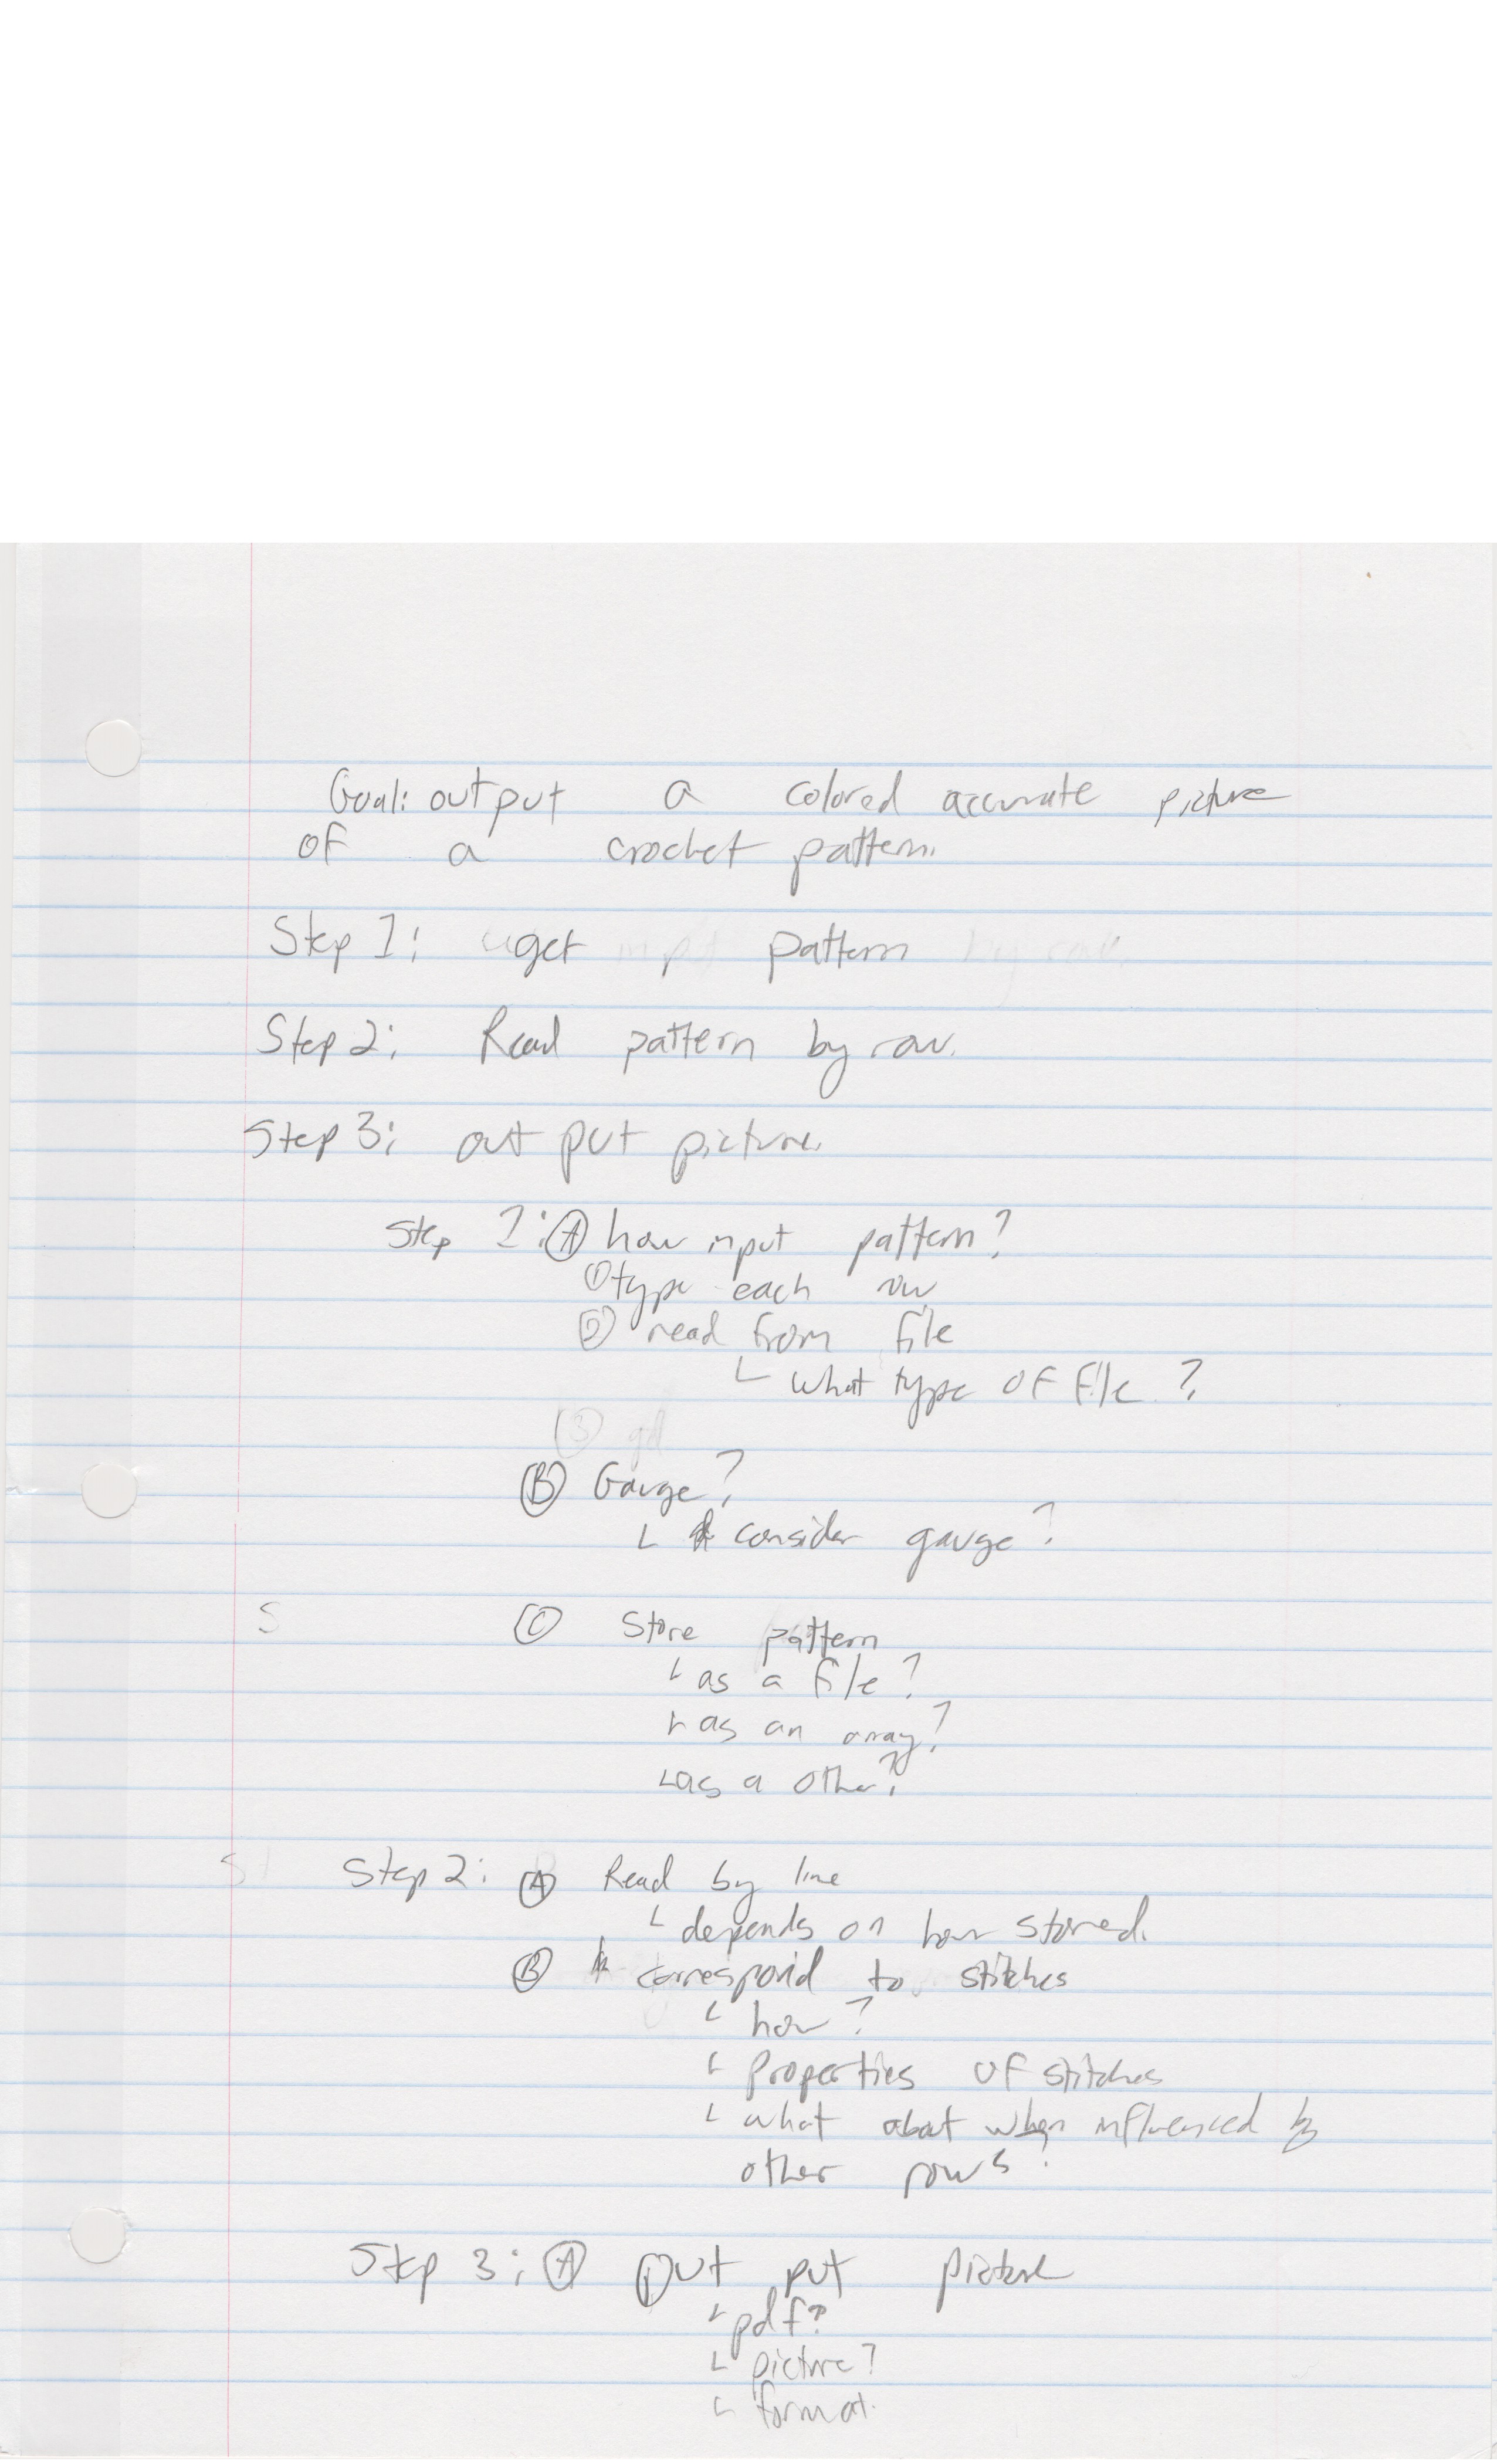 Goal: output a colored accurate picture
of a crochet pattern.
Step 1: get pattern
Step 2: Read pattern by row.
Step 3: out put picture.
Step 1: Ⓐ how input pattern?
① type each row
② read from file
└ what type of file?
③
Ⓑ Gauge?
└ consider gauge?
S Ⓒ Store pattern
└ as a file?
└ as an array?
└ as a other?
St Step 2: Ⓐ Read by line
└ depends on how stored.
Ⓑ correspond to stitches
└ how?
└ Properties of stitches
└ what about when influenced by
other rows?
Step 3: Ⓐ out put picture
└ pdf?
└ picture?
└ format.